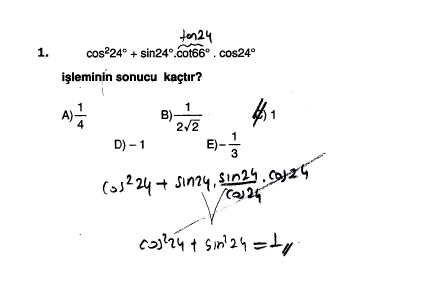 tan24
1. cos²24° + sin24°.cot66° . cos24°
işleminin sonucu kaçtır?
A) 1/4 B) 1/2√2 C) 1
D) – 1 E) – 1/3
cos²24 + sin24 . sin24/cos24 . cos24
cos²24 + sin²24 = 1